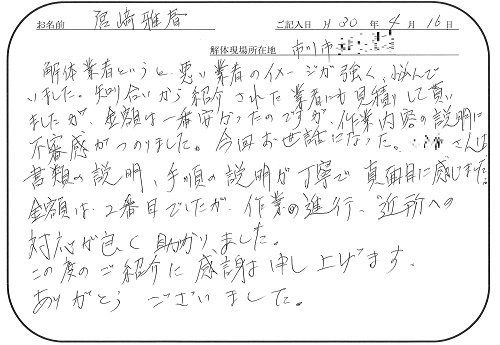 お名前 宮崎雅春 ご記入日 H30年4月16日
解体現場所在地 市川市
解体業者というと悪い業者のイメージが強く、悩んで
いました。知り合いから紹介された業者にも見積りして貰い
ましたが、金額は一番安かったのですが、作業内容の説明に
不審感がつのりました。今回お世話になった。さんは
書類の説明、手順の説明が丁寧で真面目に感じました。
金額は、2番目でしたが、作業の進行、近所への
対応が良く助かりました。
この度のご紹介に感謝申し上げます。
ありがとうございました。